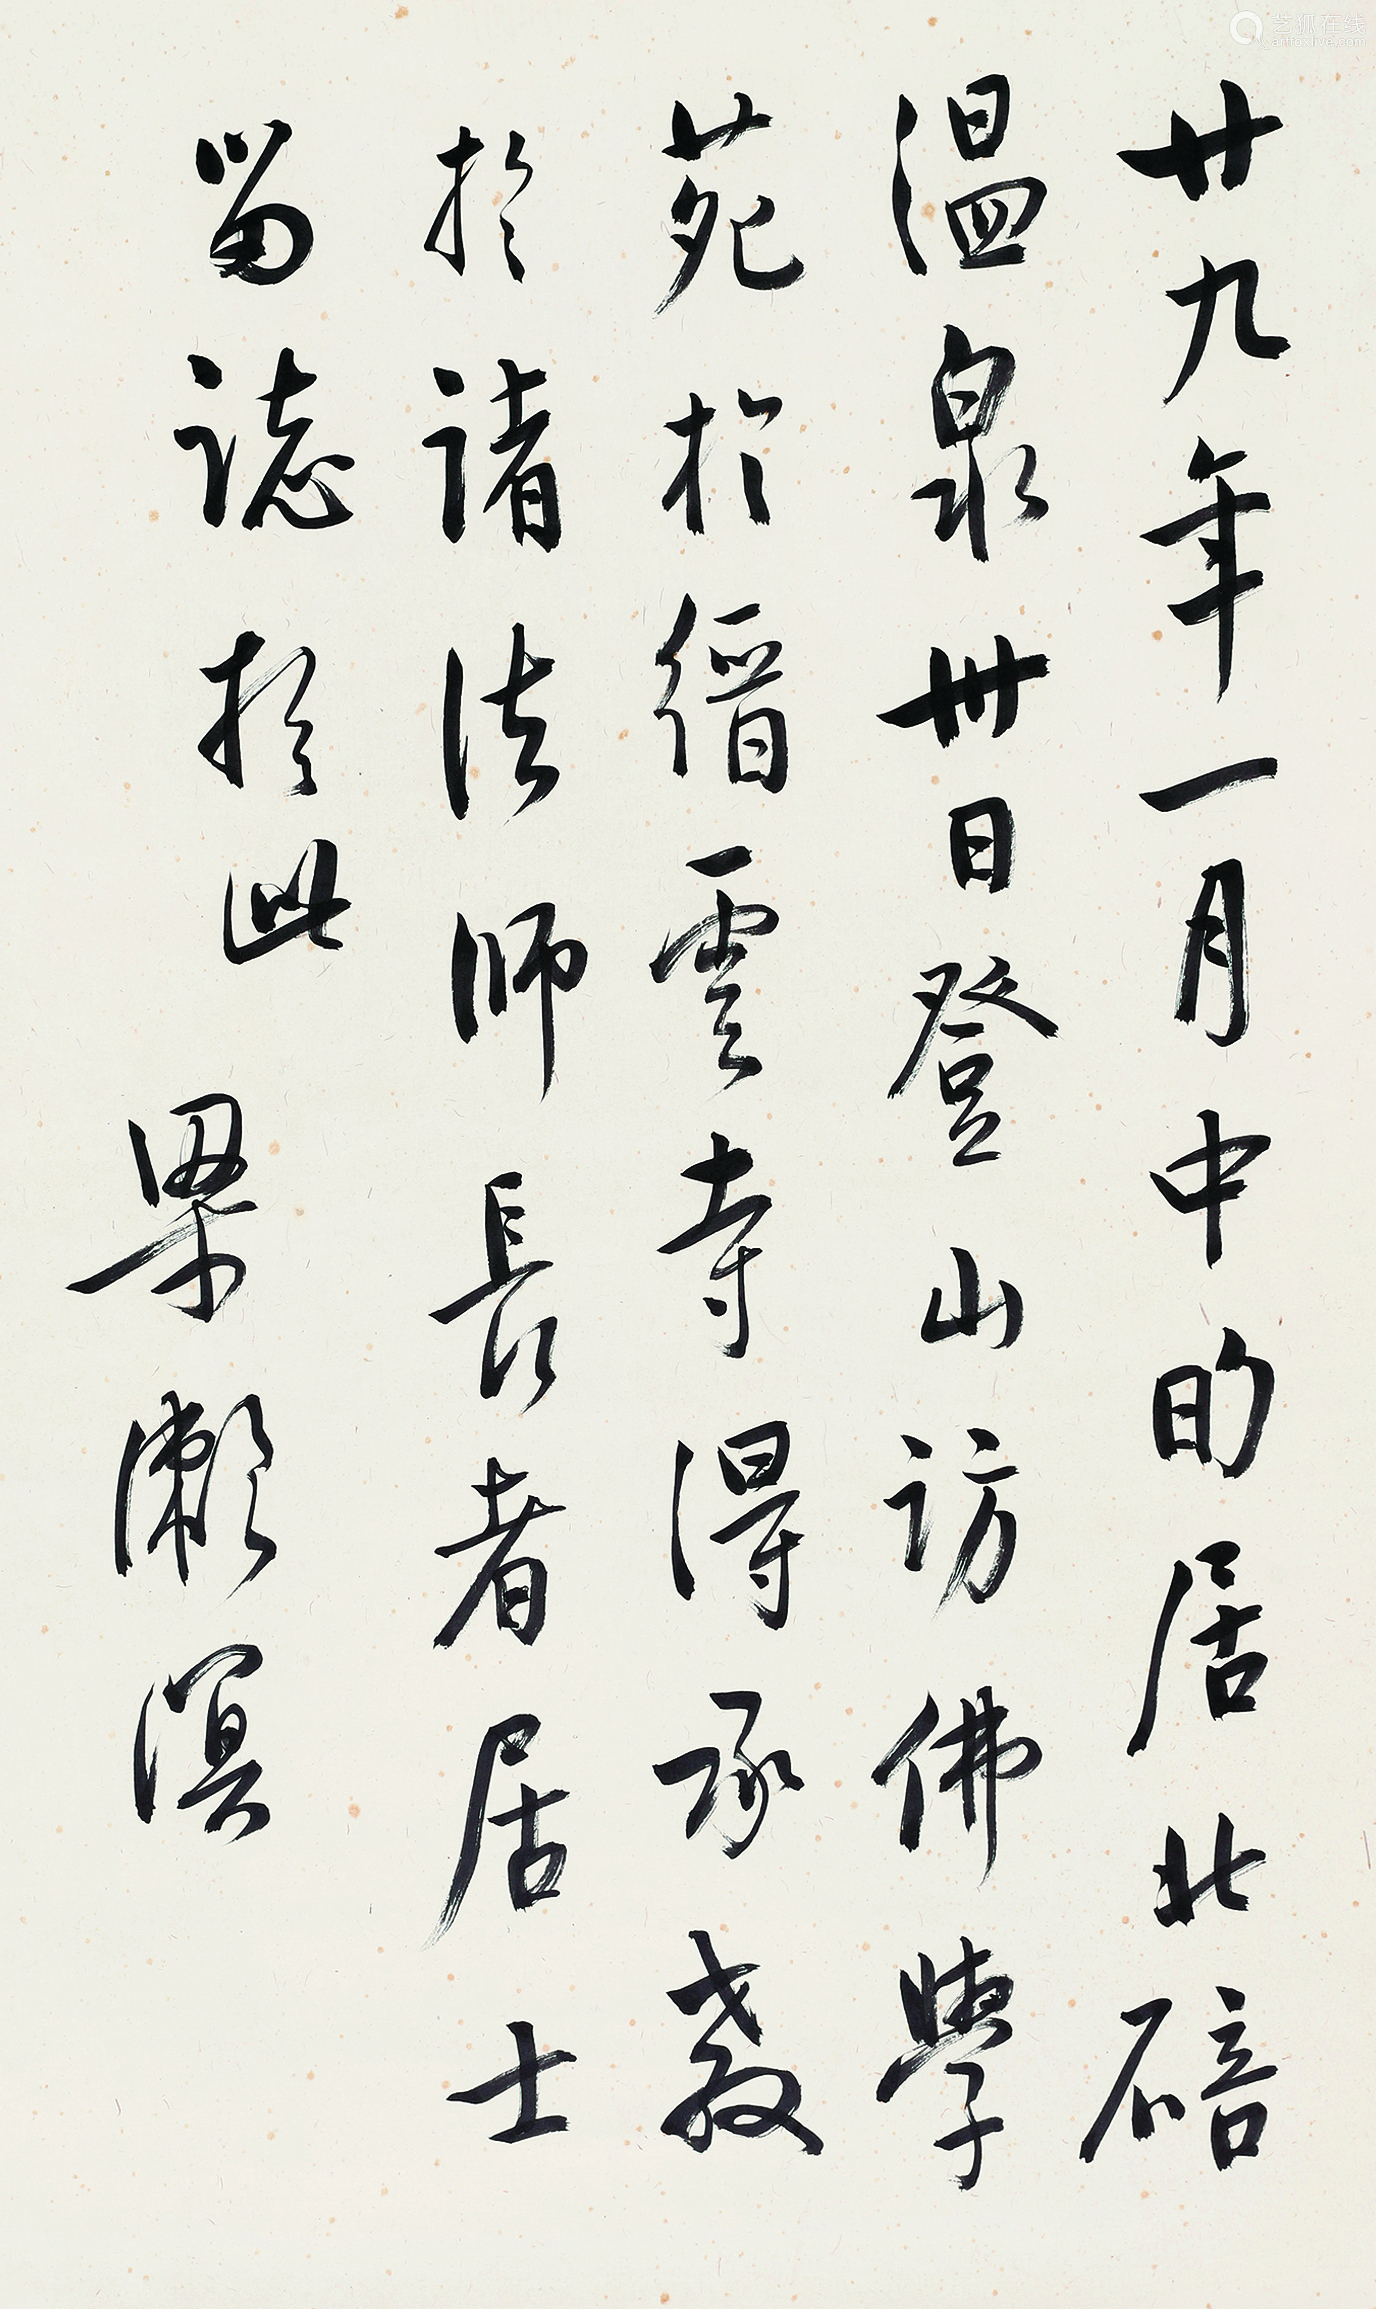 廿九年一月中旬居北碚
温泉卅日登山访佛學
苑於缙雲寺得承教
於诸法师長者居士
留誌於此
梁漱溟
艺狐在线
artfoxlive.com